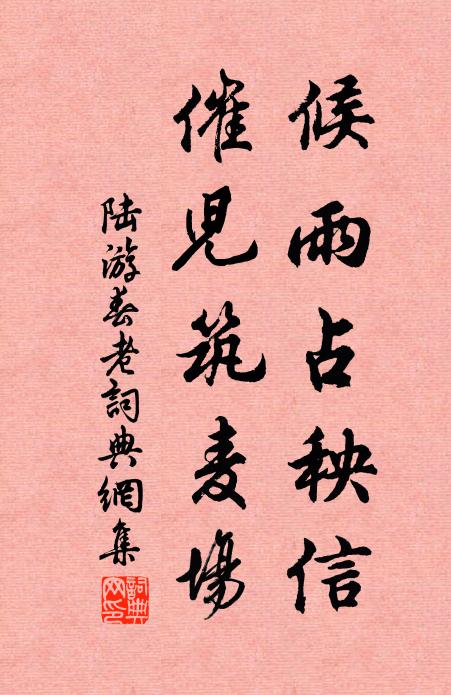 候雨占秧信
催児筑麦場
陆游春老詞典網集
詞典网印